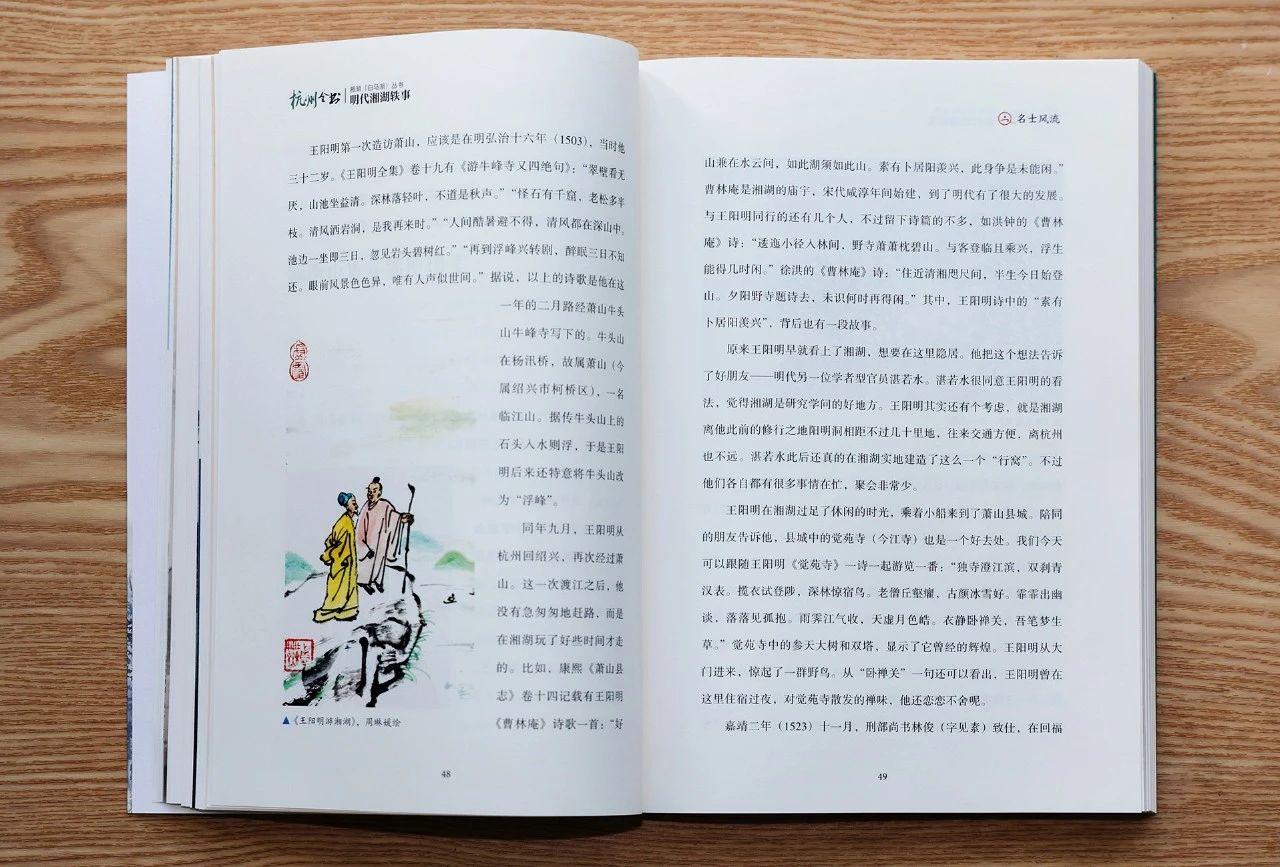 杭州全书
湘湖（白马湖）丛书
明代湘湖轶事
王阳明第一次造访萧山，应该是在明弘治十六年（1503），当时他
三十二岁。《王阳明全集》卷十九有《游牛峰寺又四绝句》：“翠壁看无
厌，山池坐益清。深林落轻叶，不道是秋声。”“怪石有千窟，老松多半
枝。清风洒岩洞，是我再来时。”“人间酷暑避不得，清风都在深山中。
池边一坐即三日，忽见岩头碧树红。”“再到浮峰兴转剧，醉眠三日不知
还。眼前风景色色异，唯有人声似世间。”据说，以上的诗歌是他在这
一年的二月路经萧山牛头
山牛峰寺写下的。牛头山
在杨汛桥，故属萧山（今
属绍兴市柯桥区），一名
临江山。据传牛头山上的
石头入水则浮，于是王阳
明后来还特意将牛头山改
为“浮峰”。
同年九月，王阳明从
杭州回绍兴，再次经过萧
山。这一次渡江之后，他
没有急匆匆地赶路，而是
在湘湖玩了好些时间才走
的。比如，康熙《萧山县
志》卷十四记载有王阳明
《曹林庵》诗歌一首：“好
▲《王阳明游湘湖》，周琳媛绘
48
二 名士风流
山兼在水云间，如此湖须如此山。素有卜居阳羡兴，此身争是未能闲。”
曹林庵是湘湖的庙宇，宋代咸淳年间始建，到了明代有了很大的发展。
与王阳明同行的还有几个人，不过留下诗篇的不多，如洪钟的《曹林
庵》诗：“逶迤小径入林间，野寺萧萧枕碧山。与客登临且乘兴，浮生
能得几时闲。”徐洪的《曹林庵》诗：“住近清湘咫尺间，半生今日始登
山。夕阳野寺题诗去，未识何时再得闲。”其中，王阳明诗中的“素有
卜居阳羡兴”，背后也有一段故事。
原来王阳明早就看上了湘湖，想要在这里隐居。他把这个想法告诉
了好朋友——明代另一位学者型官员湛若水。湛若水很同意王阳明的看
法，觉得湘湖是研究学问的好地方。王阳明其实还有个考虑，就是湘湖
离他此前的修行之地阳明洞相距不过几十里地，往来交通方便，离杭州
也不远。湛若水此后还真的在湘湖实地建造了这么一个“行窝”。不过
他们各自都有很多事情在忙，聚会非常少。
王阳明在湘湖过足了休闲的时光，乘着小船来到了萧山县城。陪同
的朋友告诉他，县城中的觉苑寺（今江寺）也是一个好去处。我们今天
可以跟随王阳明《觉苑寺》一诗一起游览一番：“独寺澄江滨，双刹青
汉表。揽衣试登陟，深林惊宿鸟。老僧丘壑癯，古颜冰雪好。霏霏出幽
谈，落落见孤抱。雨霁江气收，天虚月色皓。衣静卧禅关，吾笔梦生
草。”觉苑寺中的参天大树和双塔，显示了它曾经的辉煌。王阳明从大
门进来，惊起了一群野鸟。从“卧禅关”一句还可以看出，王阳明曾在
这里住宿过夜，对觉苑寺散发的禅味，他还恋恋不舍呢。
嘉靖二年（1523）十一月，刑部尚书林俊（字见素）致仕，在回福
49